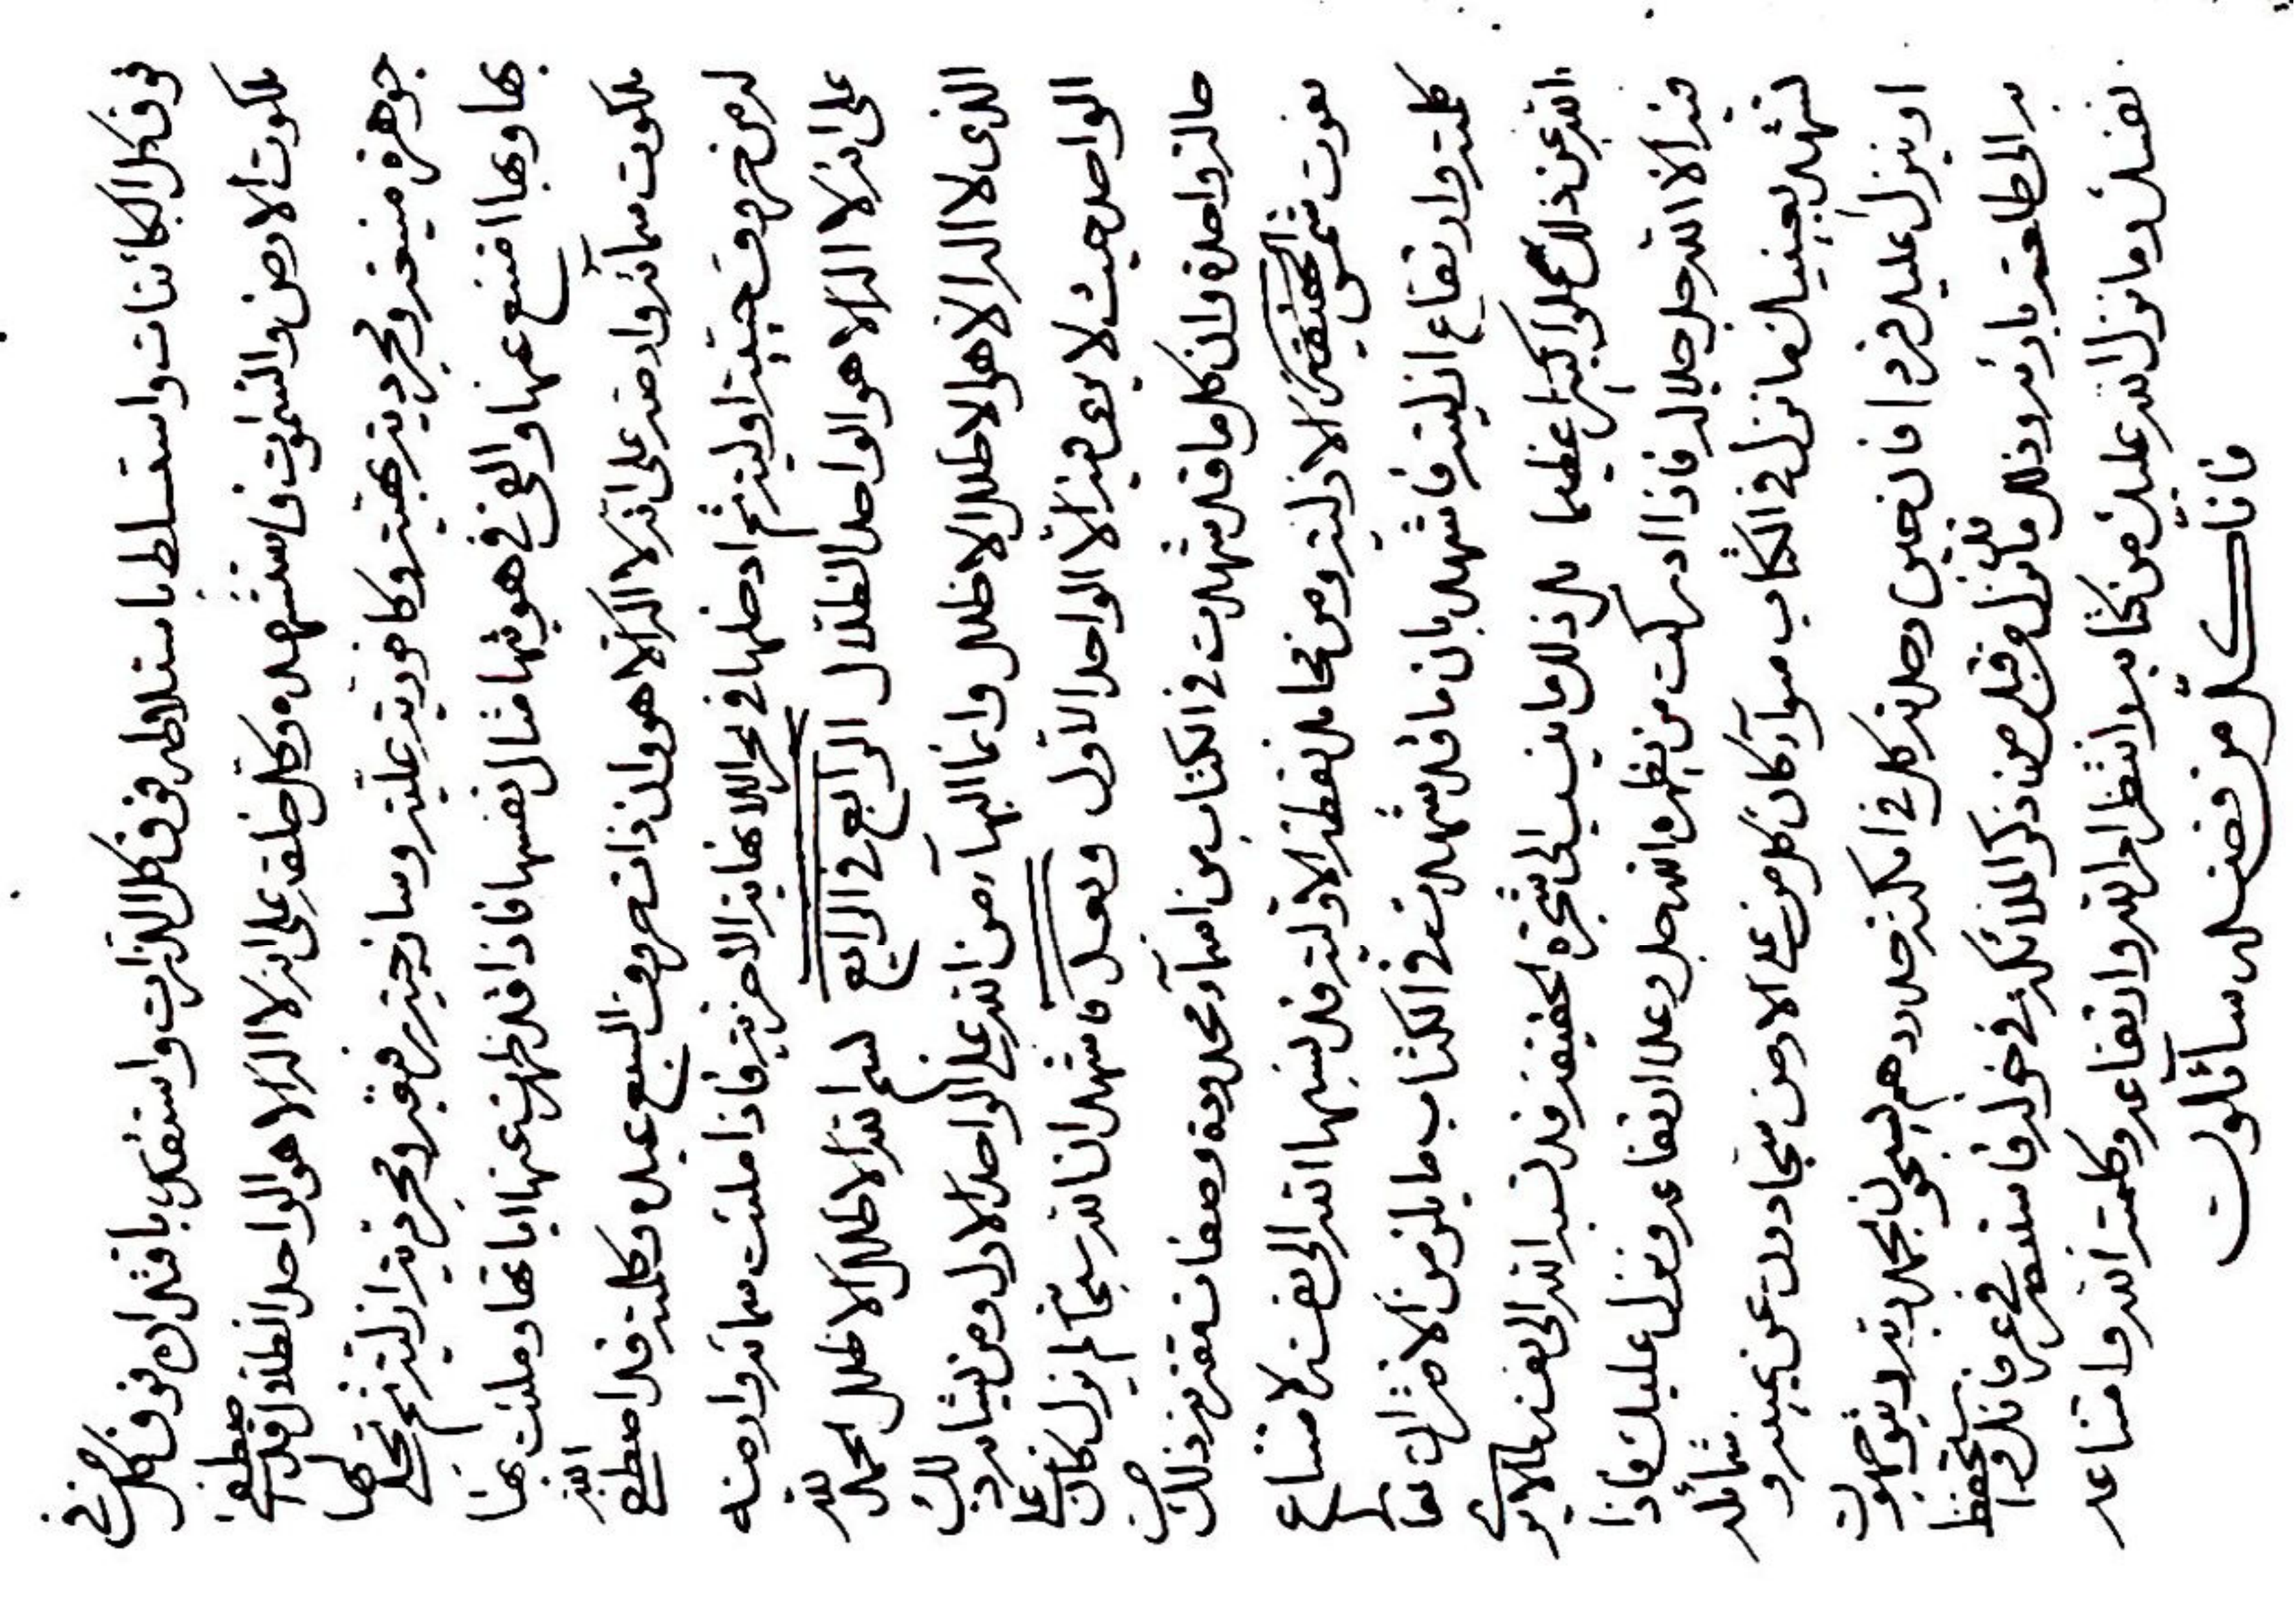 فوق كل الكائنات واستسلط باستلاطه فوق كل الذرات واستقدر باقتداره فوق كل من في
ملكوت الارض والسموات فاستشهده وكل خلقه على انه لا اله الا هو الواحد الظلال قد اصطفى
جوهرة منيعة ومجردية بهية وكافورية علية وساذجية رفيعة ومجردية ازلية ثم تجلى لها
بها وبها امتنع عنها والقى في هويتها مثال نفسها فاذا قد ظهرت عنها اياتها وملئت بها
ملكوت سمائه وارضه على انه لا اله الا هو وان ذات حروف السبع عبده وكلمته قد اصطفى الله
له من حروف حيية اولية ثم ادخلها في بحر اللانهاية الاخرية فاذا ملئت سمائه وارضه
على انه لا اله الا هو الواحد الظلال الرابع في الرابع بسم الله الاظلل الاظلل الحمد لله
الذي لا اله الا هو الاظلل الاظلل وانما البهاء من الله على الواحد الاول ومن يشابه ذلك
الواحد حيث لا يرى فيه الا الواحد الاول وبعد فاشهد ان الله سبحانه لم يزل كان على
حالة واحدة وان كل ما قد شهدت في الكتاب من اسماء محدودة وصفات مقترنة ذلك من
نعوت شمس الحقيقة الازلية ومن محامد نقطة الاولية قد نسبها الله الى نفسه لامتناع
كلمته وارتفاع ازليته فاشهد بان ما قد شهدت في الكتاب ما يلزمن الاقتران تعالى
الله عن ذلك علوا كبيرا عظيما بل ذلك ما ينسب الى شجرة الحقيقة قد نسبه الله الى نفسه
فيه الا الله جل جلاله فاذا ادركت من يظهره الله جل وعلا ارتفاعه ونزل عليك فاذا
لتشهد بعينيك ما نزل في الكتاب سواء كان كل من على الارض سجادون عن يمينه وشمائله
او ينزل عليه فردا فان حين وحدته كل في امكنة حدودهم ليسبحون بحمد ربه ويقومون
به الى طاعة بارئه وذلك ما نزل من قبل من ذكر الملائكة في حوله فاستبصر في عرفانك
نفسك وما نزل الله عليك من كتابه وانتظر امر الله وارتفاعه وكلمة الله وامتناعه
فانا كل من فضله سائلون